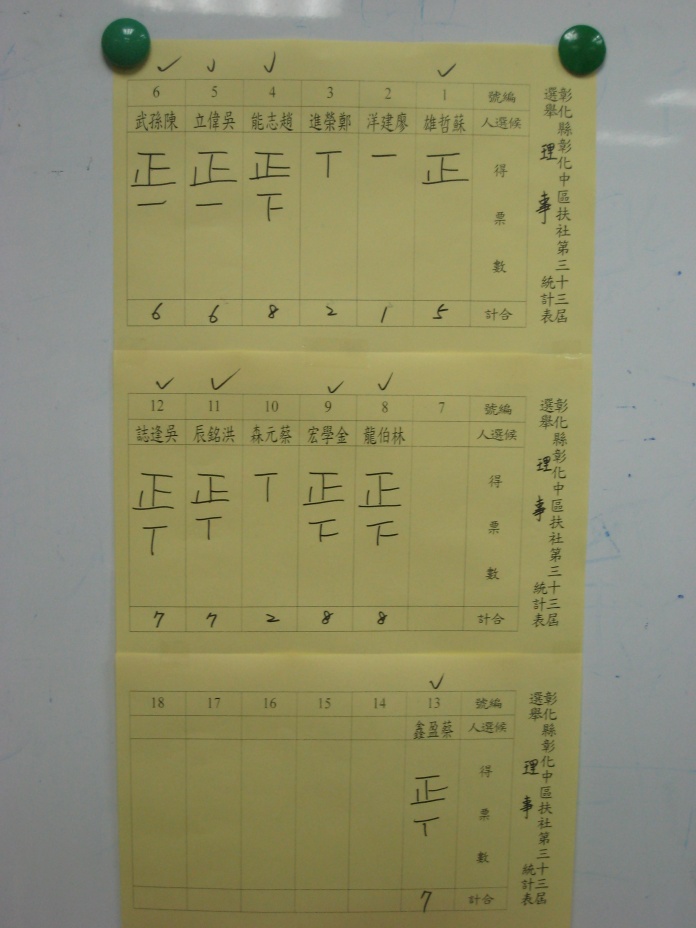 彰化縣彰化中區扶社第三十三屆
選舉 理事 統計表
編號 1 2 3 4 5 6
候選人 蘇哲雄 廖建洋 鄭榮進 趙志能 吳偉立 陳孫武
得票數 正 一 丅 正下 正一 正一
合計 5 1 2 8 6 6
彰化縣彰化中區扶社第三十三屆
選舉 理事 統計表
編號 7 8 9 10 11 12
候選人 林伯龍 金學宏 蔡元森 洪銘辰 吳逢誌
得票數 正下 正下 丅 正丅 正丅
合計 8 8 2 7 7
彰化縣彰化中區扶社第三十三屆
選舉 理事 統計表
編號 13 14 15 16 17 18
候選人 蔡盈鑫
得票數 正丅
合計 7